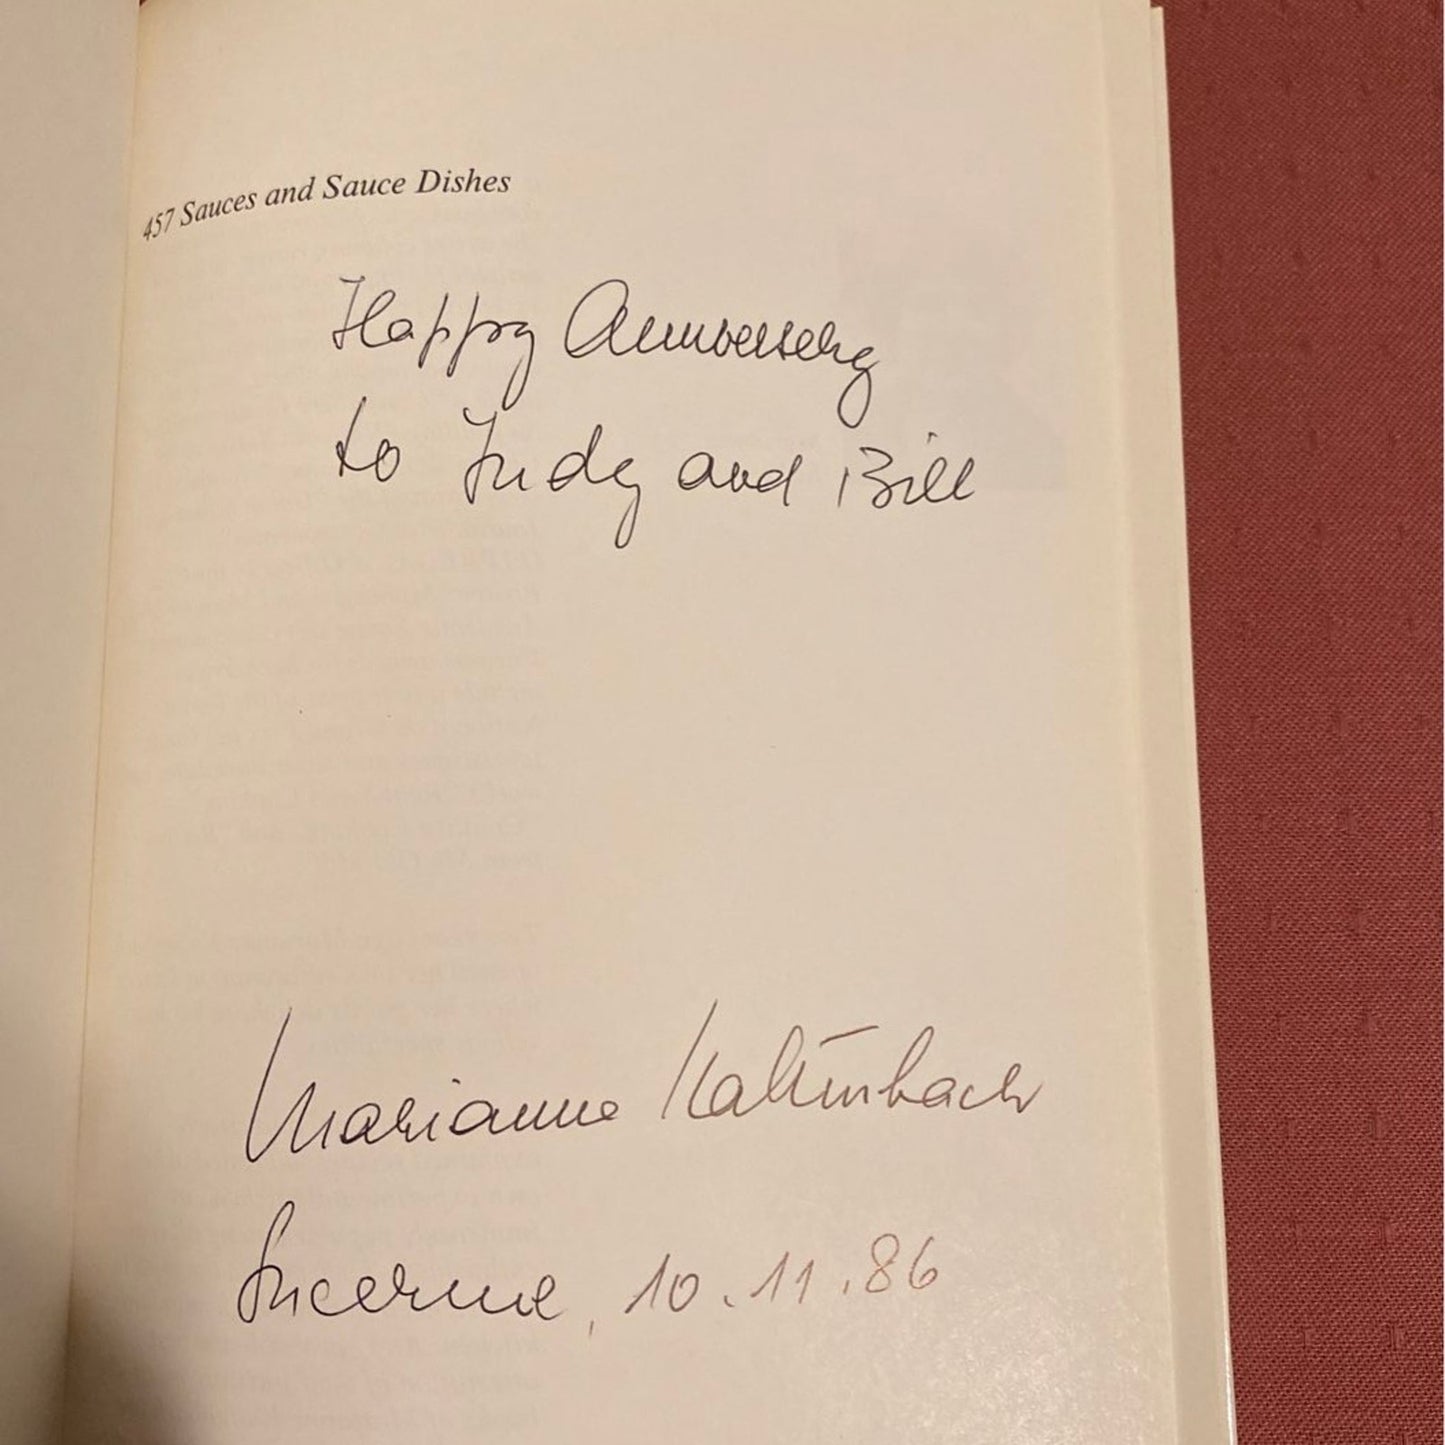 457 Sauces and Sauce Dishes
Happy Anniversary
to Judy and Bill
Marianne Kaltenbach
Lucerne, 10.11.86